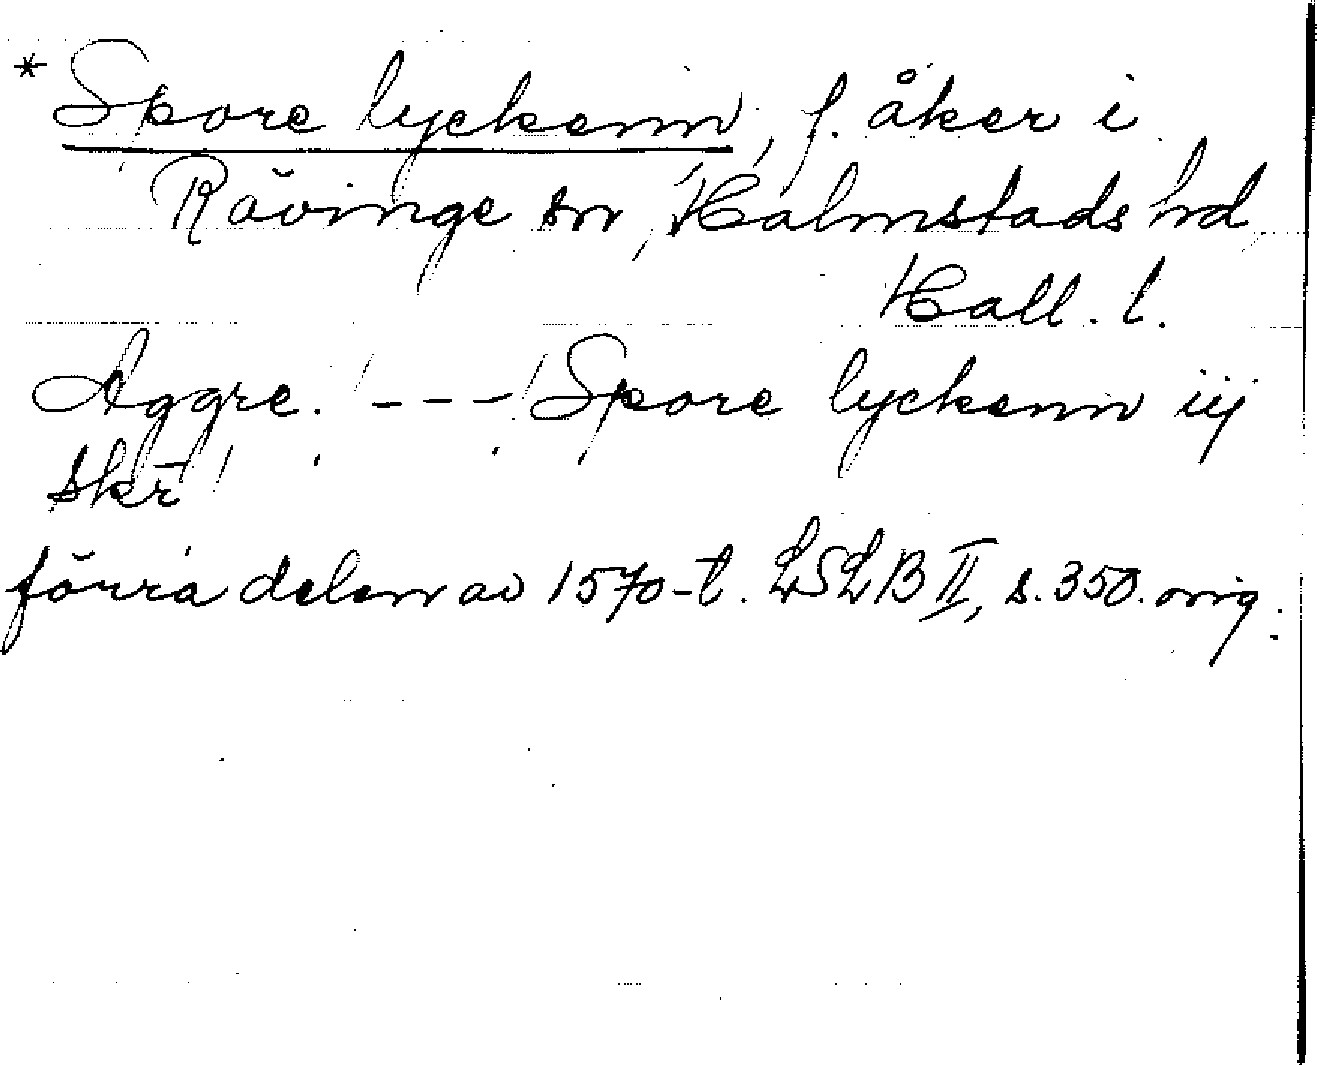 * Spore lyckenn, f. åker i
Rävinge sn, Halmstads hd
Hall. l.
Aggre. / - - - / Spore lyckenn iij
skr̄ /
förra delen av 1570-t. LSLB II, s. 350. orig.